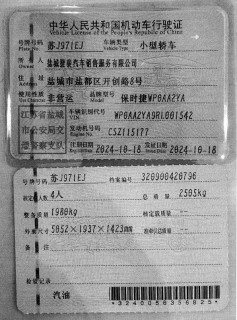 中华人民共和国机动车行驶证
Vehicle License of the People's Republic of China
号牌号码 苏J971EJ 车辆类型 小型轿车
Plate No. Vehicle Type
所有人 盐城捷豪汽车销售服务有限公司
Owner
住址 盐城市盐都区开创路8号
Address
使用性质 非营运 品牌型号 保时捷WP0AA2YA
Use Character Model
江苏省盐城 车辆识别代号 WP0AA2YA9RL001542
VIN
市公安局交 发动机号码 CSZ115177
Engine No.
通警察支队 注册日期 2024-10-18 发证日期 2024-10-18
Register Date Issue Date
号牌号码 苏J971EJ 档案编号 320900420796
核定载人数 4人 总质量 2505kg
整备质量 1980kg 核定载质量 --
外廓尺寸 5052×1937×1423mm 准牵引总质量 --
备注
检验记录
汽油
*3240056356825*